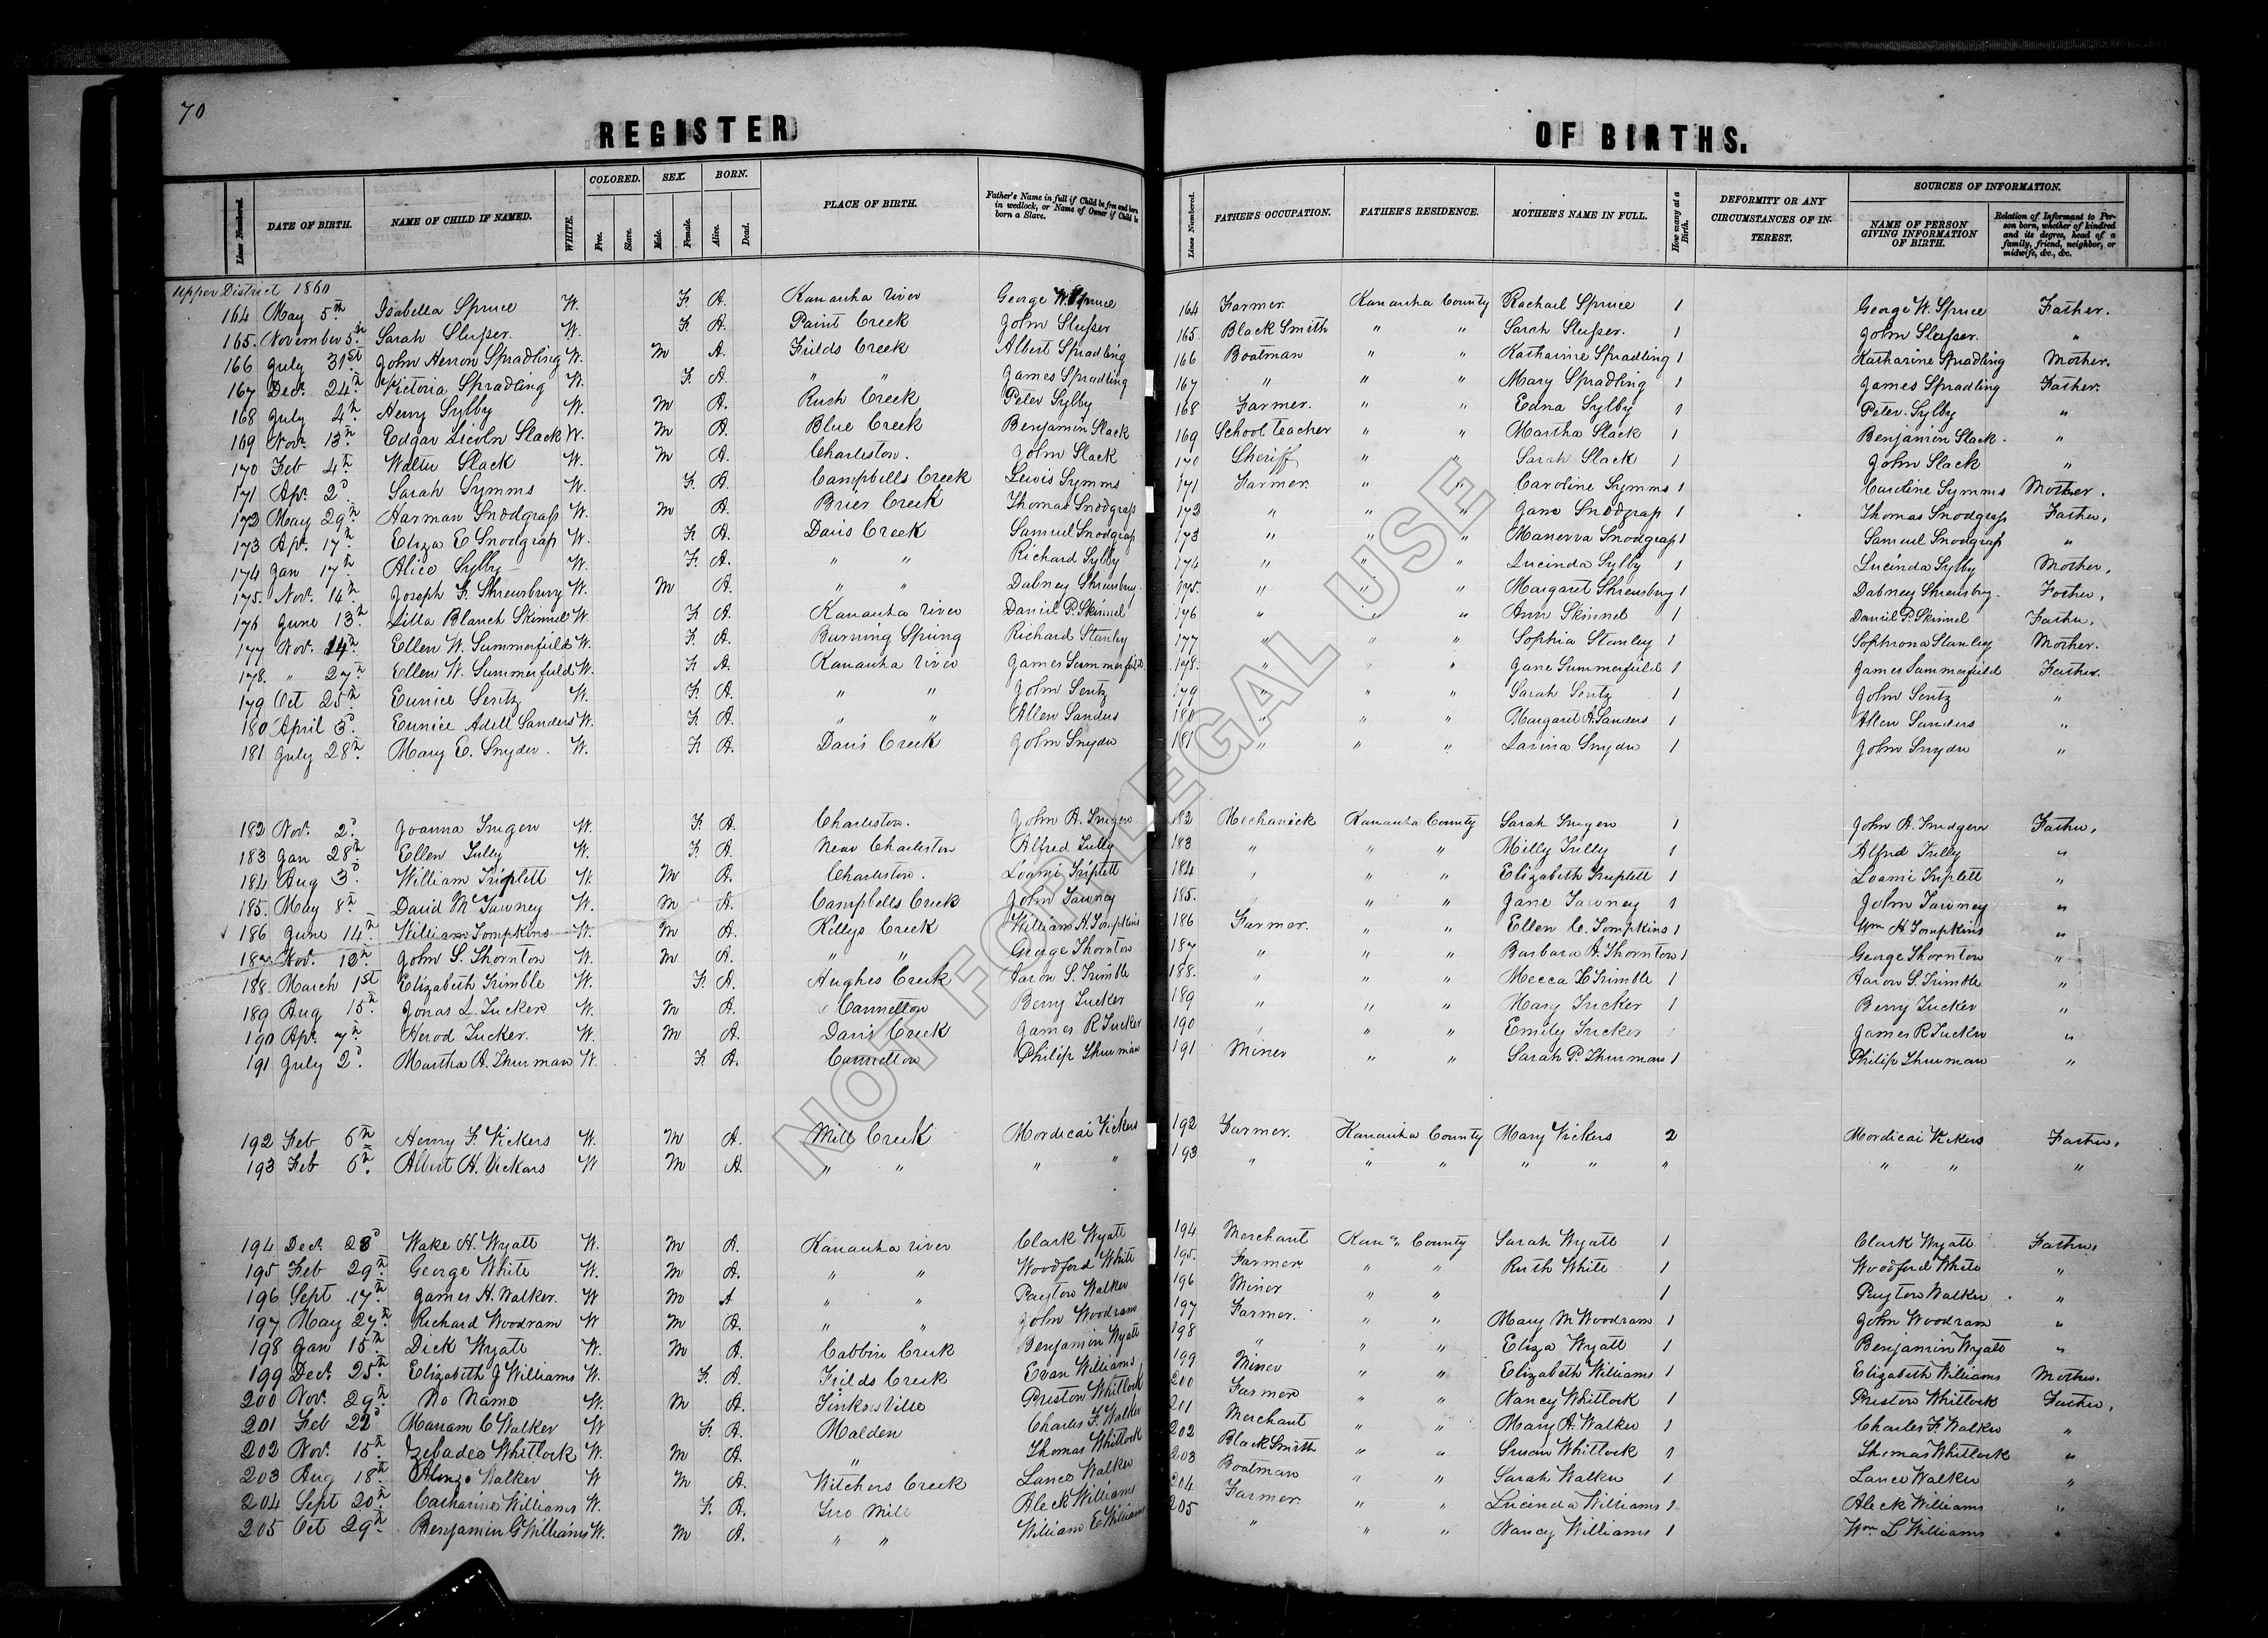 70
REGISTER OF BIRTHS.
Lines Numbered. DATE OF BIRTH. NAME OF CHILD IF NAMED. WHITE. COLORED. Free. Slave. SEX. Male. Female. BORN. Alive. Dead. PLACE OF BIRTH. Father's Name in full if Child be free and born in wedlock, or Name of Owner if Child be born a Slave. Lines Numbered. FATHER'S OCCUPATION. FATHER'S RESIDENCE. MOTHER'S NAME IN FULL. How many at a Birth. DEFORMITY OR ANY CIRCUMSTANCES OF INTEREST. SOURCES OF INFORMATION. NAME OF PERSON GIVING INFORMATION OF BIRTH. Relation of Informant to Person born, whether of kindred and its degree, head of a family, friend, neighbor, or midwife, &c., &c.
Upper District 1860
164 May 5th Isabella Spruce W. F. A. Kanawha river George W. Spruce 164 Farmer. Kanawha County Rachael Spruce 1 George W. Spruce Father.
165. November 5th Sarah Slusser. W. F. A. Paint Creek John Slusser 165 Black Smith " " Sarah Slusser. 1 John Slusser. "
166 July 31st John Herron Spradling W. M A. Fields Creek Albert Spradling 166 Boatman " " Katharine Spradling 1 Katharine Spradling Mother.
167 Dec. 24th Victoria Spradling W. F. A. " " James Spradling 167 " " " Mary Spradling 1 James Spradling Father.
168 July 4th Henry Sylby W. M A. Rush Creek Peter Sylby 168 Farmer. " " Edna Sylby 1 Peter Sylby "
169 Nov. 13th Edgar Licoln Slack W. M A. Blue Creek Benjamin Slack 169 School teacher " " Martha Slack 1 Benjamin Slack. "
170 Feb 4th Walter Slack W. M A. Charleston. John Slack 170 Sheriff " " Sarah Slack 1 John Slack "
171 Apr. 2d. Sarah Symms W. F. A. Campbells Creek Lewis Symms 171 Farmer. " " Caroline Symms 1 Caroline Symms Mother.
172 May 29th Harman Snodgrass W. M A. Brier Creek Thomas Snodgrass 172 " " " Jane Snodgrass 1 Thomas Snodgrass Father,
173 Apr. 17th Eliza E Snodgrass W. F. A. Davis Creek Samuel Snodgrass 173 " " " Manerva Snodgrass 1 Samuel Snodgrass "
174 Jan 17th Alice Sylby W. F. A. " " Richard Sylby 174 " " " Lucinda Sylby 1 Lucinda Sylby Mother,
175. Nov. 14th Joseph F. Shrewsbury W. M A. " " Dabney Shrewsbury. 175. " " " Margaret Shrewsbury 1 Dabney Shrewsbry. Father,
176 June 13th Lilla Blanch Skinnel W. F. A. Kanawha River Daniel P. Skinnel 176 " " " Ann Skinnel 1 Daniel P. Skinnel Father,
177 Nov. 14th Ellen W. Summerfield W. F. A. Burning Spring Richard Stanley 177 " " " Sophia Stanley 1 Sophrona Stanley Mother.
178. " 27th Ellen W. Summerfield W. F. A. Kanawha river James Summerfield 178. " " " Jane Summerfield 1 James Summerfield Father.
179 Oct 25th Eunice Sentz W. F. A. " " John Sentz 179 " " " Sarah Sentz 1 John Sentz "
180 April 3d. Eunice Adell Sanders W. F. A. " " Allen Sanders 180 " " " Margaret A. Sanders 1 Allen Sanders "
181 July 28th Mary E. Snyder. W. F. A. Davis Creek John Snyder 181 " " " Lavina Snyder 1 John Snyder "
182 Nov. 2d. Joanna Smgen W. F. A. Charleston. John A. Smgen 182 Mechanick Kanawha County Sarah Smgen 1 John A. Smdgen Father,
183 Jan 28th Ellen Tully W. F. A. Near Charleston Alfred Tully 183 " " " Milly Tully 1 Alfred Tully "
184 Aug 3d. William Triplett W. M A. Charleston. Loami Triplett 184 " " " Elizabeth Truplett 1 Loami Triplett "
185. May 8th David M Tawney W. M A. Campbells Creek John Tawney 185. " " " Jane Tawney 1 John Tawney "
186 June 14th William Tompkins W. M A. Kellys Creek William H. Tompkins 186 Farmer. " " Ellen C. Tompkins 1 Wm H Tompkins "
187 Nov. 12th John S. Thornton W. M A. " " George Thornton 187 " " " Barbara A. Thornton 1 George Thornton "
188. March 1st Elizabeth Trimble W. F. A. Hughes Creek Aaron S. Trimble 188. " " " Mecca L Trimble 1 Aaron S. Trimble "
189 Aug 15th Jonas L. Tucker W. M A. Cannelton Berry Tucker 189 " " " Mary Tucker 1 Berry Tucker "
190 Apr. 7th Herod Tucker. W. M A. Davis Creek James R Tucker 190 " " " Emily Tucker James R Tucker "
191 July 2d. Martha A. Thurman W. F. A. Cannelton Philip Thurman 191 Miner " " Sarah P. Thurman 1 Philip Thurman "
192 Feb 6th Henry F. Vickers W. M A. Mill Creek Mordicai Vickers 192 Farmer. Kanawha County Mary Vickers 2 Mordicai Vickers Father,
193 Feb 6th Albert A. Vickars W M A. " " " " 193 " " " " " " " " "
194 Dec. 23d Wake H. Wyatt W. M A. Kanawha river Clark Wyatt 194 Merchant Kana County Sarah Wyatt 1 Clark Wyatt Father,
195 Feb 29th George White W. M A. " " Woodford White 195. Farmer " " Ruth White 1 Woodford White "
196 Sept 17th James A. Walker. W M A " " Payton Walker 196 Miner " " 1 Payton Walker. "
197 May 27th Richard Woodram W M A. " " John Woodram 197 Farmer. " " Mary M Woodram 1 John Woodram "
198 Jan 15th Dick Wyatt W. M A. Cabbin Creek Benjamin Wyatt 198 " " " Eliza Wyatt 1 Benjamin Wyatt "
199 Dec. 25th Elizabeth J Williams W. F. A. Fields Creek Evan Williams 199 Miner " " Elizabeth Williams 1 Elizabeth Williams Mother.
200 Nov. 29th No Name W. M A. Tinkersville Preston Whitlock 200 Farmer " " Nancy Whitlock 1 Preston Whitlock Father,
201 Feb 22d Mariam C Walker W F. A. Malden Charles F. Walker 201 Merchant " " Mary A. Walker 1 Charles F. Walker "
202 Nov. 15th Zebadee Whitlock W. M A. " Thomas Whitlock 202 Black Smith " " Susan Whitlock 1 Thomas Whitlock "
203 Aug 18th Alonzo Walker W M A. Witchers Creek Lance Walker 203 Boatman " " Sarah Walker 1 Lance Walker "
204 Sept 20th Catharine Williams W. F. A. Two Mill Aleck Williams 204 Farmer. " " Lucinda Williams 1 Aleck Williams "
205 Oct 29th Benjamin G Williams W. M A. " " William E Williams 205 " " " Nancy Williams 1 Wm L Williams "
NOT FOR LEGAL USE